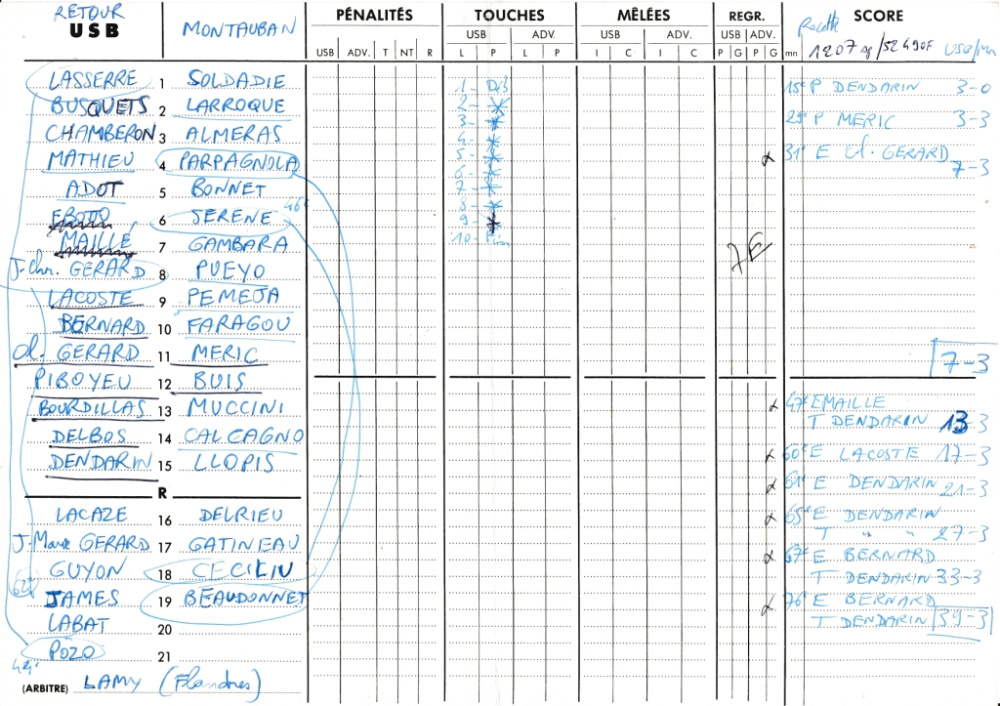 RETOUR
USB MONTAUBAN PÉNALITÉS TOUCHES MÊLÉES REGR. SCORE
USB ADV. USB ADV. USB ADV. Recette 1207 /52490F USB/Mn
USB ADV. T NT R L P L P I C I C P G P G mn
LASSERRE 1 SOLDADIE 1- 15e P DENDARIN 3-0
BUSQUETS 2 LARROQUE 2- 29e P MERIC 3-3
CHAMBERON 3 ALMERAS 3-
MATHIEU 4 PARPAGNOLA 4- 5- 31e E Cl. GERARD 7-3
ADOT 5 BONNET 6- 7-
EBOTTO 6 SERENE 46e 8- 9-
MAILLÉ 7 GAMBARA 10- Fin 7E
J-Chr. GERARD 8 PUEYO
LACOSTE 9 PEMEJA
BERNARD 10 FARAGOU
Cl. GERARD 11 MERIC 7-3
PIBOYEU 12 BUIS
BOURDILLAS 13 MUCCINI 47e E MAILLE
DELBOS 14 CALCAGNO T DENDARIN 13 3
DENDARIN 15 LLOPIS 60e E LACOSTE 17-3
R 61e E DENDARIN 21-3
LACAZE 16 DELRIEU 65e E DENDARIN
J-Marc GERARD 17 GATINEAU T " " 27-3
GUYON 18 CECILIU 67e E BERNARD
62e T DENDARIN 33-3
JAMES 19 BEAUDONNET 76e E BERNARD
LABAT 20 T DENDARIN 39-3
POZO 21
44e
(ARBITRE) LAMY (Flandres)